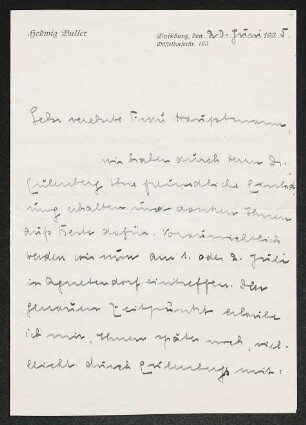 Hedwig Buller
Duisburg, den 23. Juni 1935.
Düsseldorferstr. 193
Sehr verehrte Frau Hauptmann,
wir haben durch Herrn Dr.
Eulenberg Ihre freundliche Einlad-
ung erhalten und danken Ihnen
aufs Beste dafür. Voraussichtlich
werden wir nun am 1. oder 2. Juli
in Agnetendorf eintreffen. Den
genauen Zeitpunkt erlaube
ich mir, Ihnen später noch, viel-
leicht durch Eulenbergs mit: